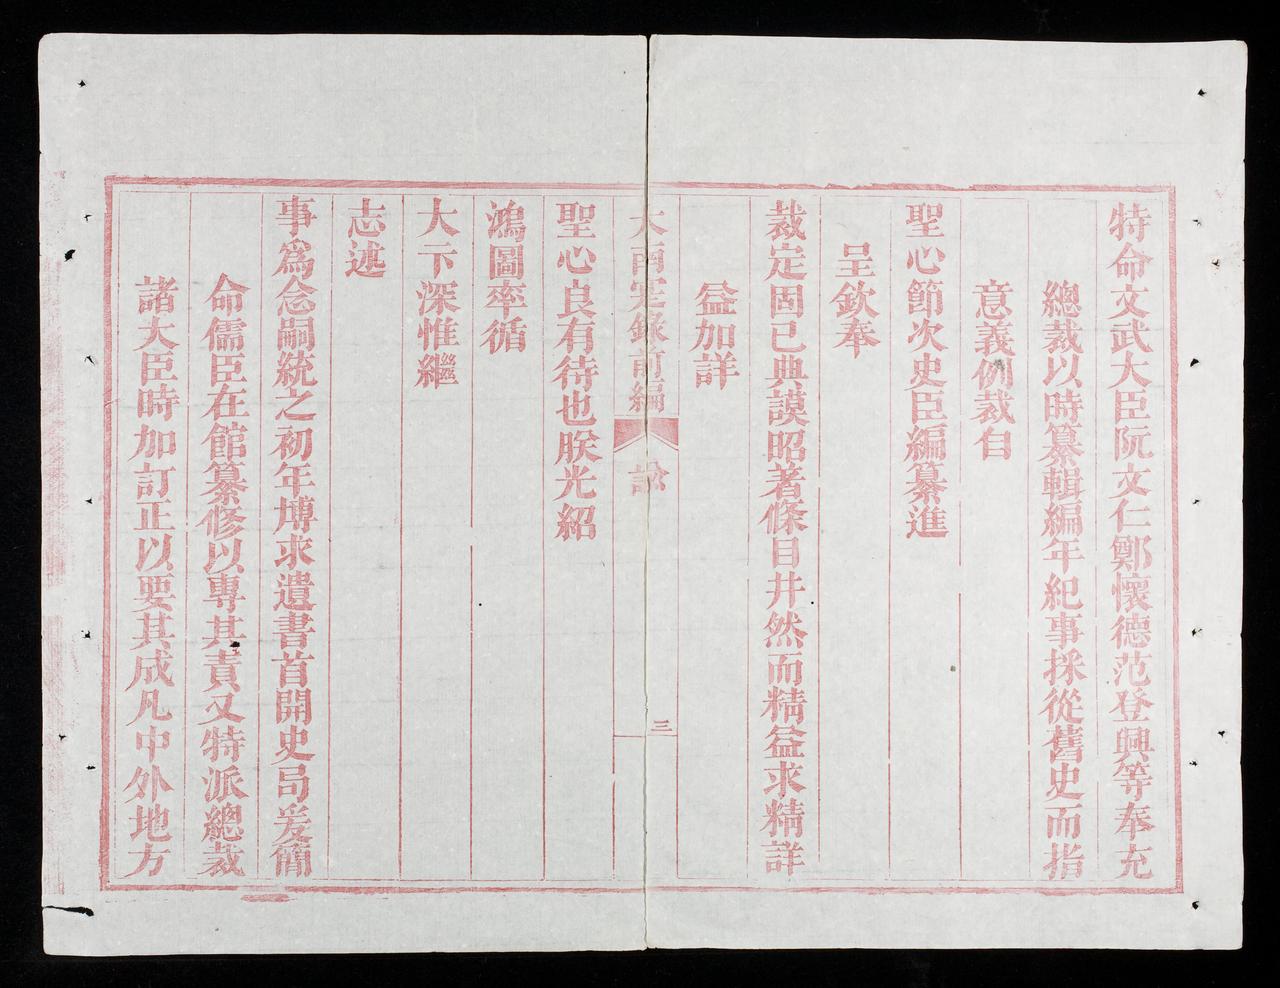 特命文武大臣阮文仁鄭懷德范登興等奉充
總裁以時纂輯編年紀事採從舊史而指
意義例裁自
聖心節次史臣編纂進
呈欽奉
裁定固已典謨昭著條目井然而精益求精詳
益加詳
大南寔錄前編
諭
三
聖心良有待也朕光紹
鴻圖率循
大卞深惟繼
志述
事爲念嗣統之初年博求遺書首開史局爰簡
命儒臣在館纂修以專其責又特派總裁
諸大臣時加訂正以要其成凡中外地方